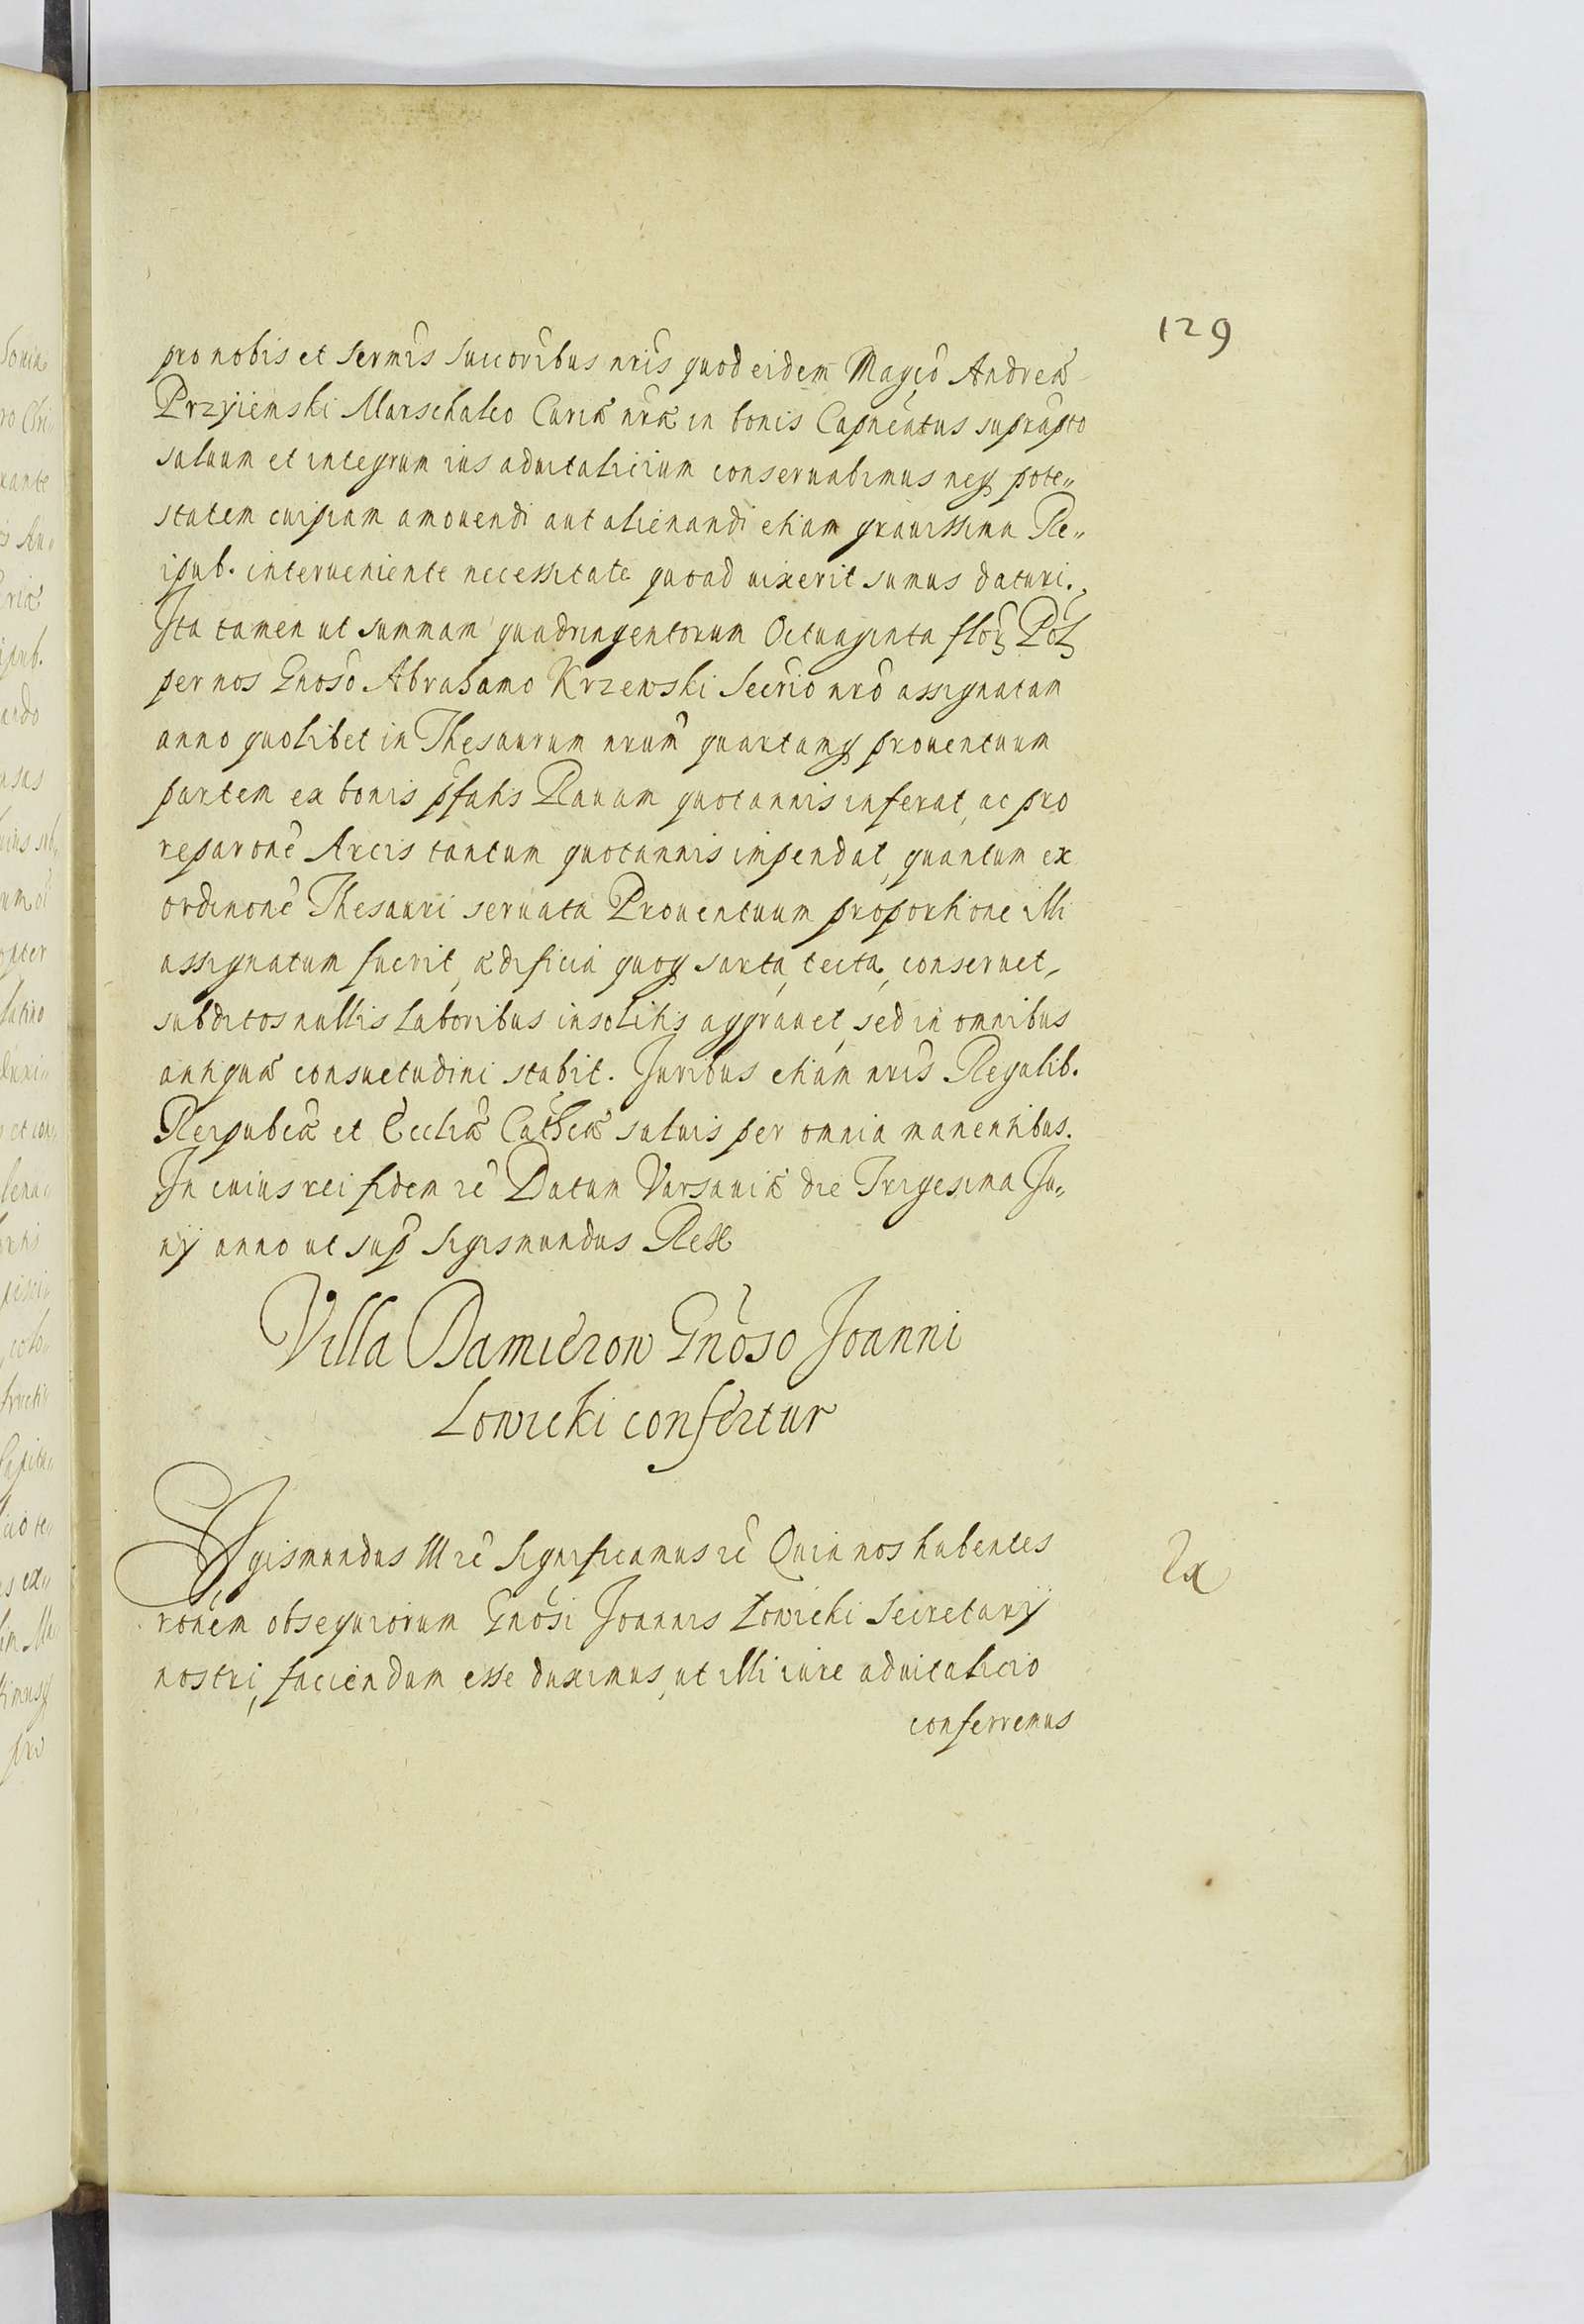 129
pro nobis et Sermis Succoribus nris quod eidem Magco Andreæ
Przyiemski Marschalco Curiæ nræ in bonis Capneatus suprapto
saluum et integrum ius aduitalicium conseruabimus neq₃ pote„
statem cuipiam amouendi aut alienandi etiam grauissima Re„
ipub. interueniente necessitate quoad uixerit sumus daturi.
Ita tamen ut summam quadringentorum Octuaginta floꝝ Pol
per nos Gnoso Abrahamo Krzewski Secrio nro assignatam
anno quolibet in Thesaurum nrum quartamq₃ prouentuum
partem ex bonis pfatis Rauam quotannis inferat, ac pro
reparone Arcis tantum quotannis impendat, quantum ex
ordinone Thesauri seruata Prouentuum proportione illi
assignatum fuerit, ædificia quoq₃ sarta, tecta, conseruet,
subditos nullis laboribus insolitis aggrauet, sed in omnibus
antiquæ consuetudini stabit. Juribus etiam nris Regalib.
Reipubcæ et Eccliæ Cathcæ saluis per omnia manentibus.
In cuius rei fidem zc Datum Varsauiæ die Trigesima Ju„
nij anno ut sup Sigismundus Rex
Villa Damierow Gnoso Joanni
Lowicki confertur
Sigismundus III zc Significamus zc Quia nos habentes
ronem obsequiorum Gnosi Joannis Łowicki Secretarij
nostri, faciendum esse duximus, ut illi iure aduitalicio
conferremus